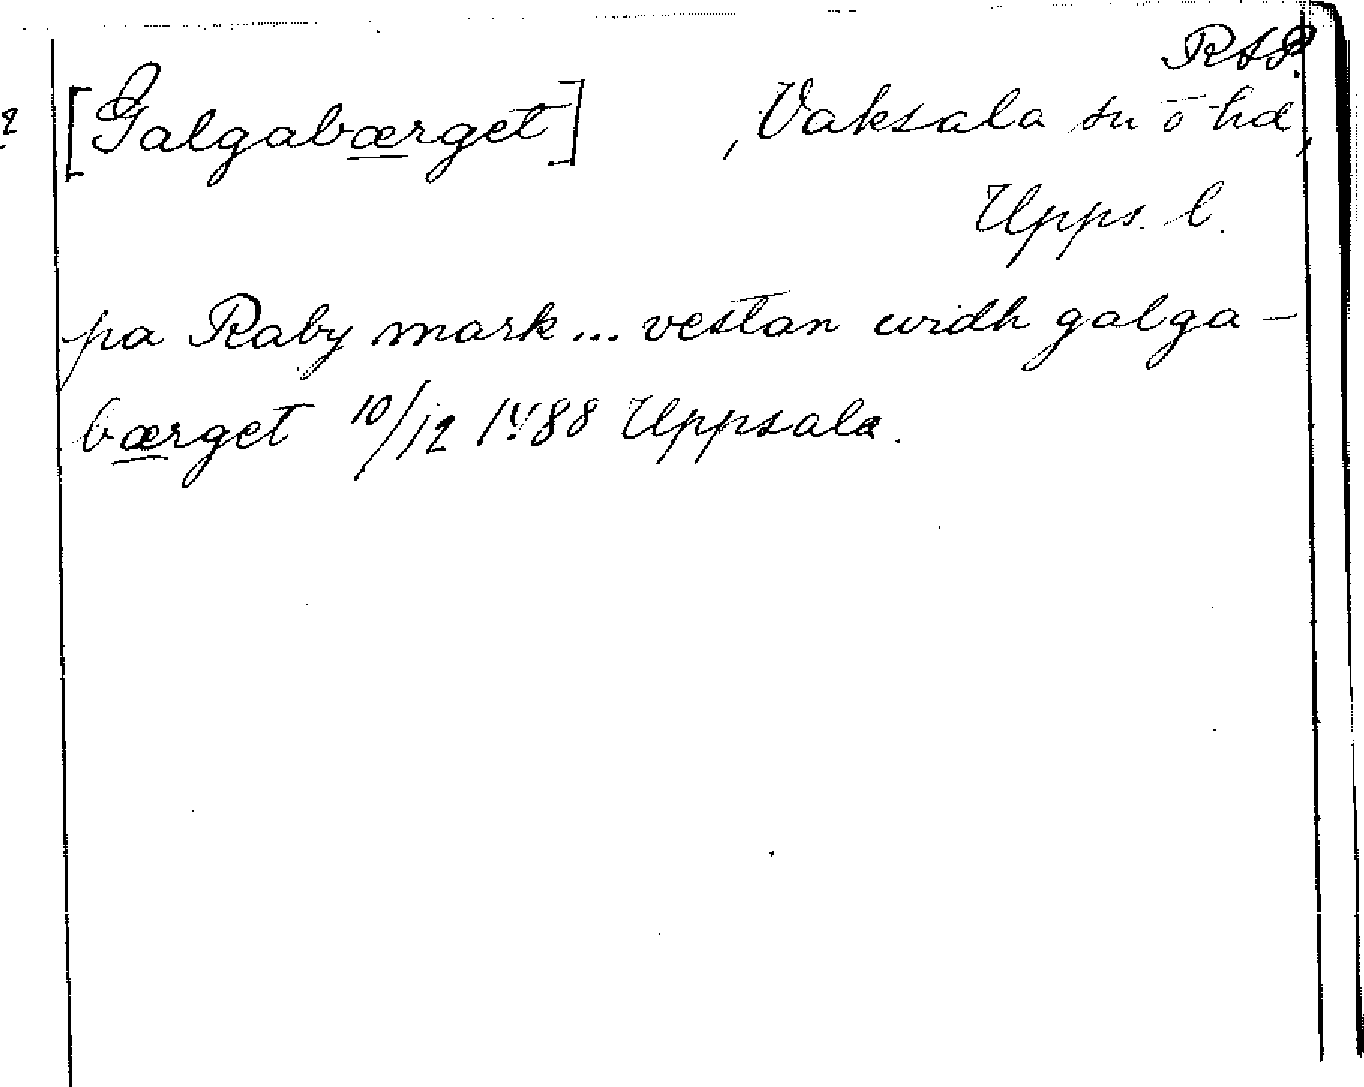 RAP.
[Galgabærget] , Vaksala sn o hd,
Upps. l.
pa Raby mark... vestan widh galga-
bærget 10/12 1488 Uppsala.